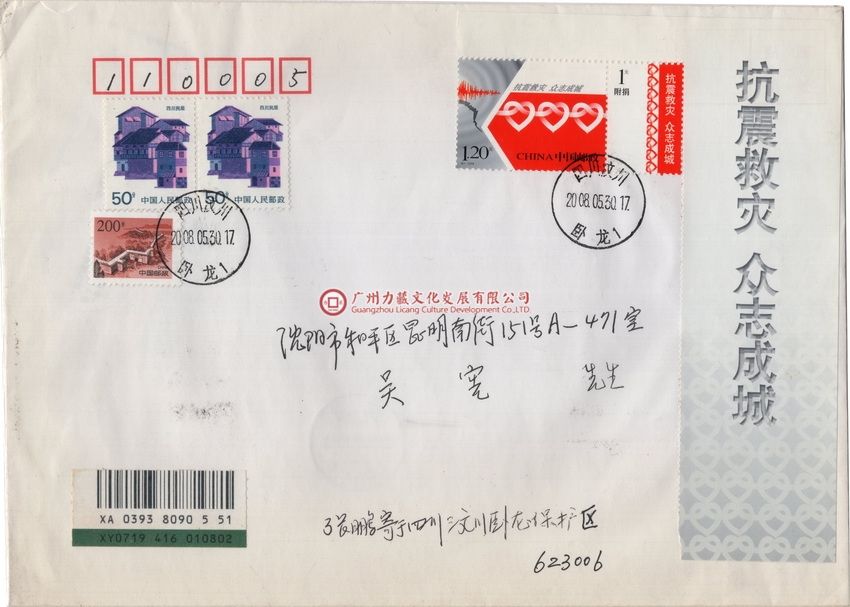 110005
四川民居
50分 中国人民邮政
四川民居
50分 中国人民邮政
200分
中国邮政
四川汶川
2008.05.30.17
卧龙1
抗震救灾 众志成城
1.20元
CHINA 中国邮政
1元
附捐
抗震救灾 众志成城
四川汶川
2008.05.30.17
卧龙1
抗震救灾 众志成城
广州力藏文化发展有限公司
Guangzhou Licang Culture Development Co.,LTD
沈阳市和平区昆明南街151号A-471室
吴宪 先生
XA 0393 8090 5 51
XY0719 416 010802
张鹏寄于四川汶川卧龙保护区
623006